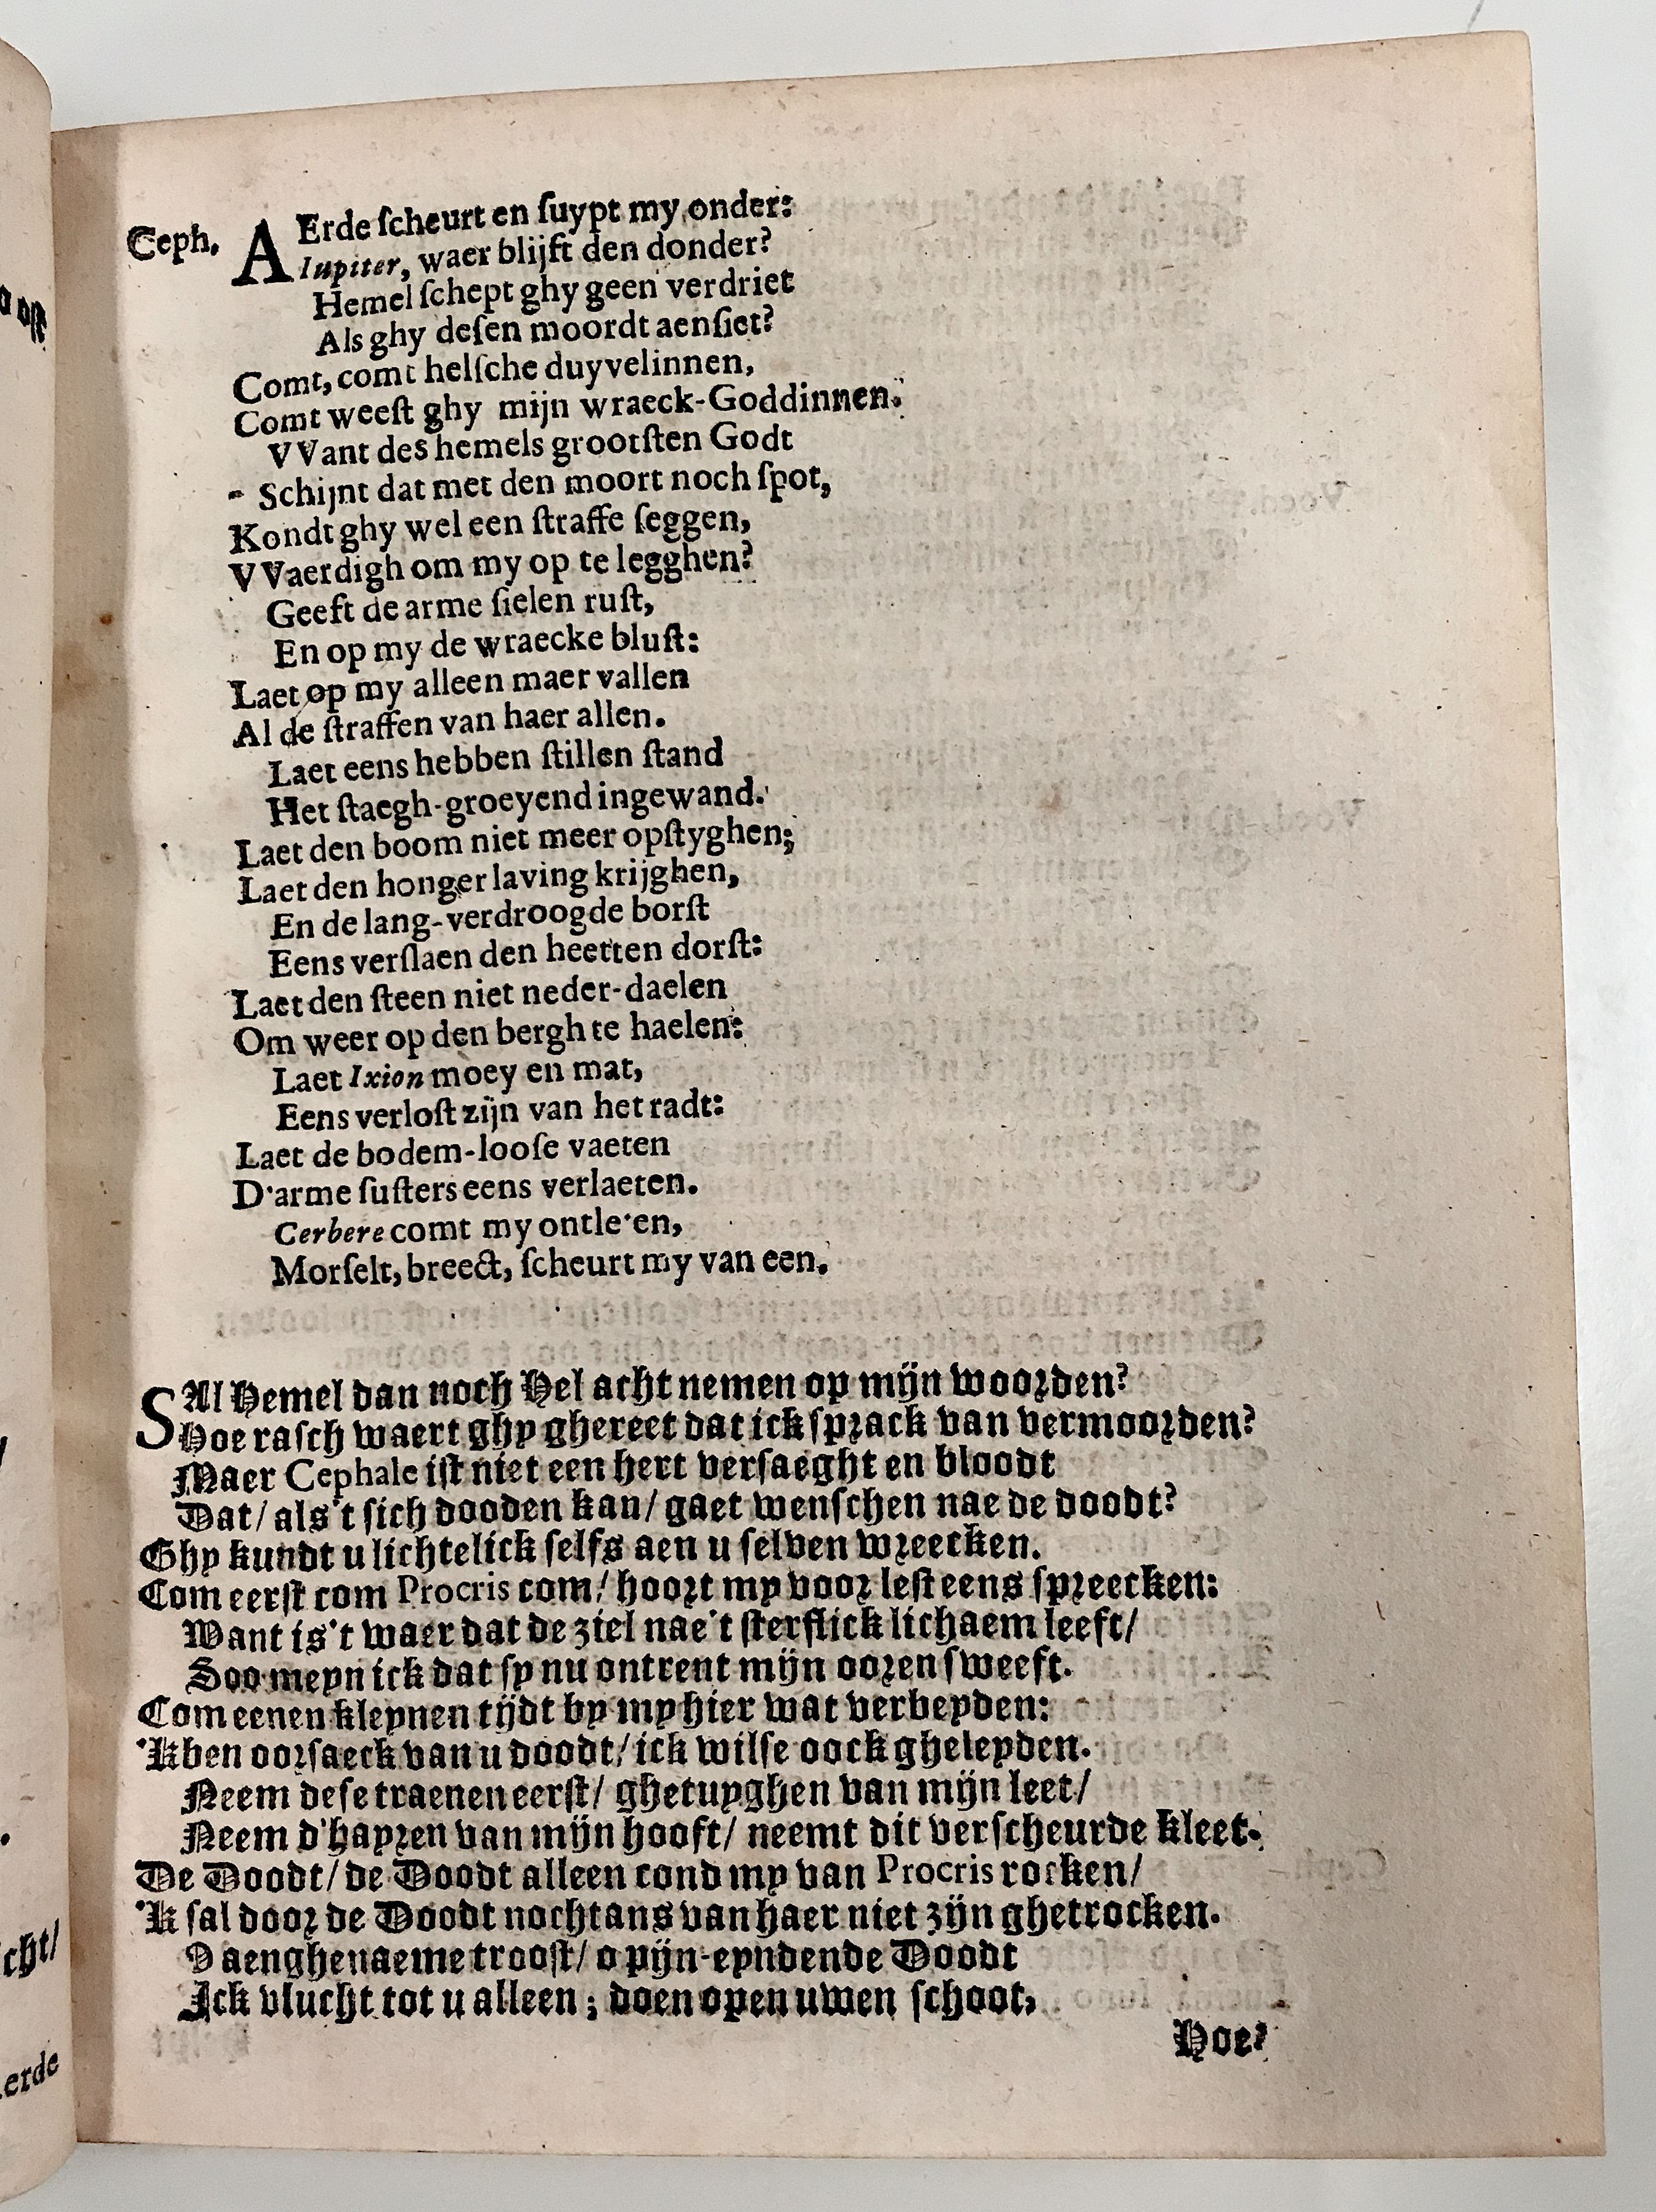 Ceph. AErde ſcheurt en ſuypt my onder:
Iupiter, waer blijft den donder?
Hemel ſchept ghy geen verdriet
Als ghy deſen moordt aenſiet?
Comt, comt helſche duyvelinnen,
Comt weeſt ghy mijn wraeck-Goddinnen.
VVant des hemels grootſten Godt
Schijnt dat met den moort noch ſpot,
Kondt ghy wel een ſtraffe ſeggen,
VVaerdigh om my op te legghen?
Geeft de arme ſielen ruſt,
En op my de wraecke bluſt:
Laet op my alleen maer vallen
Al de ſtraffen van haer allen.
Laet eens hebben ſtillen ſtand
Het ſtaegh-groeyend ingewand.
Laet den boom niet meer opſtyghen;
Laet den honger laving krijghen,
En de lang-verdroogde borſt
Eens verſlaen den heetten dorſt:
Laet den ſteen niet neder-daelen
Om weer op den bergh te haelen:
Laet Ixion moey en mat,
Eens verloſt zijn van het radt:
Laet de bodem-looſe vaeten
D'arme ſuſters eens verlaeten.
Cerbere comt my ontle'en,
Morſelt, breect, ſcheurt my van een.
SAl Hemel dan noch Hel acht nemen op mijn woorden?
Hoe raſch waert ghy ghereet dat ick ſprack van vermoorden?
Maer Cephale iſt niet een hert verſaeght en bloodt
Dat/ als't ſich dooden kan/ gaet wenſchen nae de doodt?
Ghy kundt u lichtelick ſelfs aen u ſelven wreecken.
Com eerſt com Procris com/ hoort my voor leſt eens ſpreecken:
Want is't waer dat de ziel nae't ſterflick lichaem leeft/
Soo meyn ick dat ſy nu ontrent mijn ooren ſweeft.
Com eenen kleynen tijdt by my hier wat verbeyden:
'Kben oorſaeck van u doodt/ ick wilſe oock gheleyden.
Neem deſe traenen eerſt/ ghetuyghen van mijn leet/
Neem d'hayren van mijn hooft/ neemt dit verſcheurde kleet.
De Doodt/ de Doodt alleen cond my van Procris rocken/
'K ſal door de Doodt nochtans van haer niet zijn ghetrocken.
O aenghenaeme trooſt/ o pijn-eyndende Doodt
Ick vlucht tot u alleen; doen open uwen ſchoot,
Hoe?